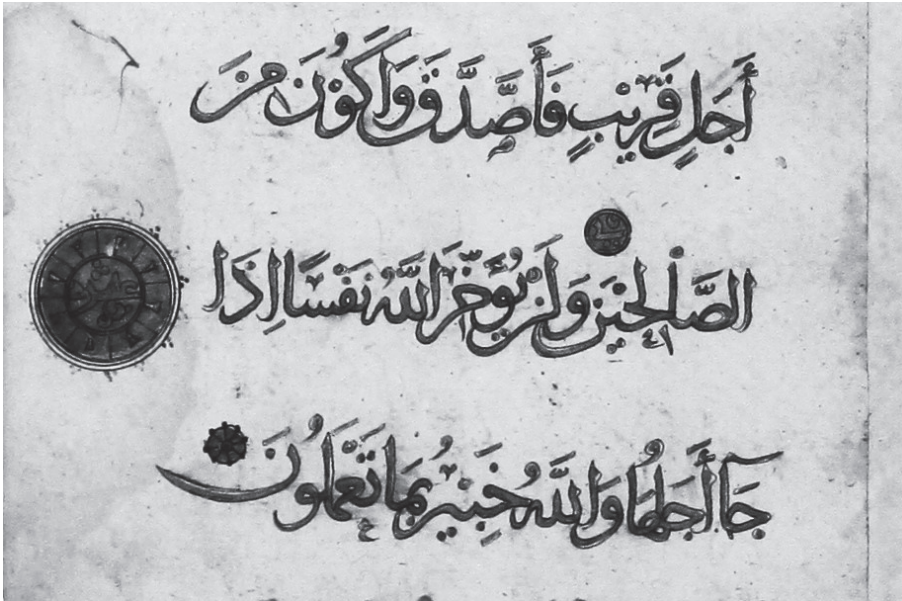 أَجَلٍ قَرِيْبٍ فَأَصَّدَّقَ وَاَكُوْنَ مِنَ
الصَّالِحِيْنَ وَلَنْ يُؤَخِّرَ اللَّهُ نَفْسًا اِذَا
جَآ أَجَلُهَا وَاللَّهُ خَبِيْرٌ بِمَا تَعْمَلُونَ